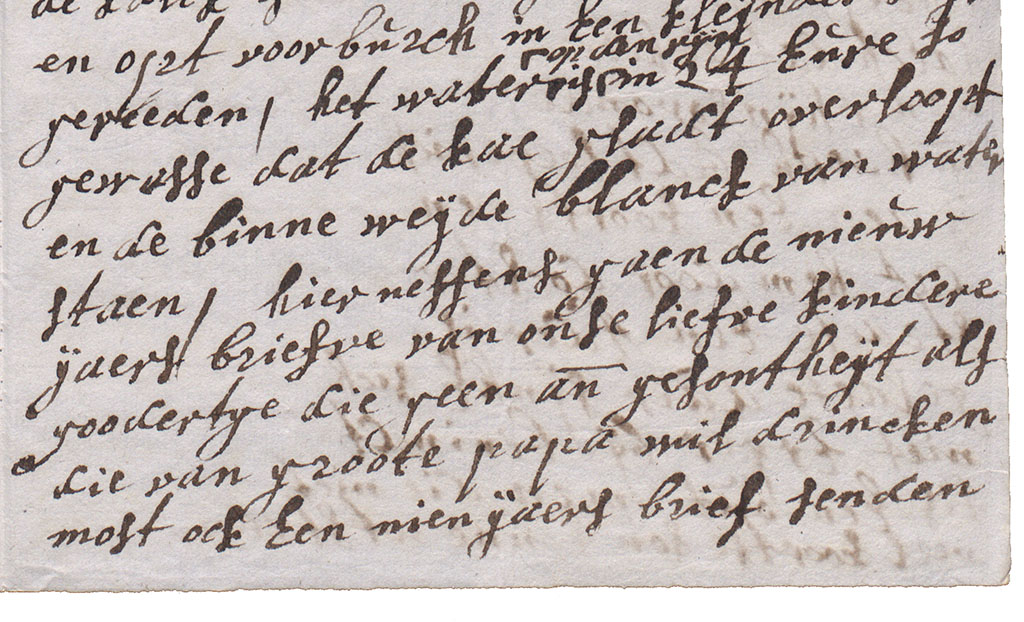 en opt voorburch in een kleynder
op dan ryn
gereeden / het water is in 24 eure so
gewasse dat de kae gladt overloopt
en de binne weyde blanck van water
staen / hier neffens gaen de nieuw
yaers briefve van onse liefve kindere
goodertge die geen an̄ gesontheyt als
die van groote papa wil drincken
most ock een nieu yaers brief senden